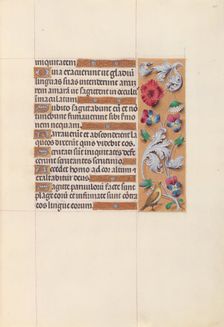 iniquitatem.
Quia exacuerunt ut gladiū
linguas suas intenderunt arcū
rem amarā ut sagittent in occul
immaculatum.
Subito sagittabunt eū et nō
timebunt firmauerunt sibi ser
monem nequam.
narrauerūt ut absconderent la
queos dixerunt quis videbit eos.
Scrutati sūt iniquitates defe
cerunt scrutantes scrutinio.
Accedet homo ad cor altum et
exaltabitur deus.
Sagitte paruuloȝ facte sunt
plage eorū et infirmate sunt cōtra
eos lingue eorum.